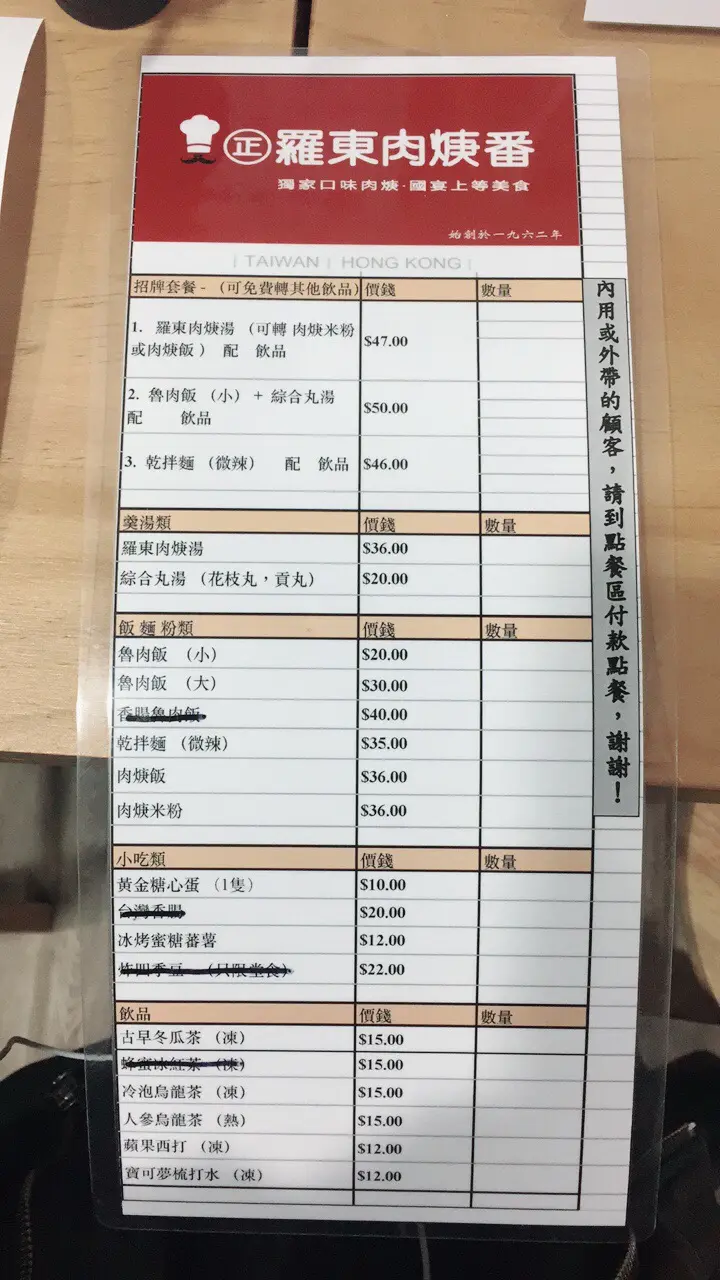 正 羅東肉焿番
獨家口味肉焿·國宴上等美食
始創於一九六二年
| TAIWAN | HONG KONG |
招牌套餐 - （可免費轉其他飲品） 價錢 數量
1. 羅東肉焿湯 （可轉 肉焿米粉
或肉焿飯 ） 配 飲品 $47.00
2. 魯肉飯 （小） + 綜合丸湯
配 飲品 $50.00
3. 乾拌麵 （微辣） 配 飲品 $46.00
羹湯類 價錢 數量
羅東肉焿湯 $36.00
綜合丸湯 （花枝丸，貢丸） $20.00
飯 麵 粉類 價錢 數量
魯肉飯 （小） $20.00
魯肉飯 （大） $30.00
香腸魯肉飯 $40.00
乾拌麵 （微辣） $35.00
肉焿飯 $36.00
肉焿米粉 $36.00
小吃類 價錢 數量
黃金糖心蛋 （1隻） $10.00
台灣香腸 $20.00
冰烤蜜糖蕃薯 $12.00
炸四季豆 （只限堂食） $22.00
飲品 價錢 數量
古早冬瓜茶 （凍） $15.00
蜂蜜冰紅茶 （凍） $15.00
冷泡烏龍茶 （凍） $15.00
人參烏龍茶 （熱） $15.00
蘋果西打 （凍） $12.00
寶可夢梳打水 （凍） $12.00
內用或外帶的顧客，請到點餐區付款點餐，謝謝！